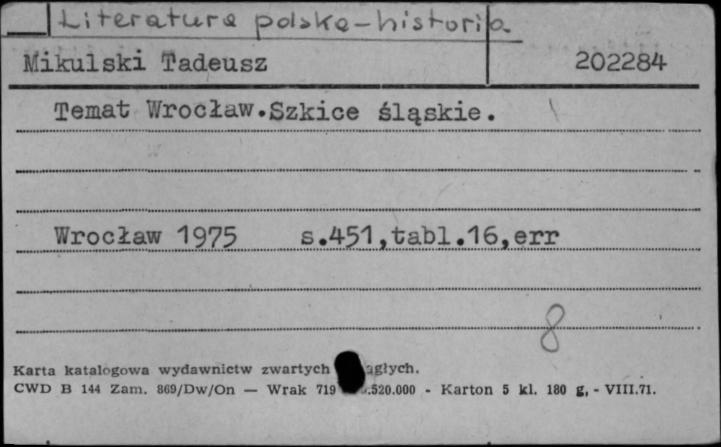 Literatura polska-historia.
Mikulski Tadeusz 202284
Temat Wrocław.Szkice śląskie.
Wrocław 1975 s.451,tabl.16,err
8
Karta katalogowa wydawnictw zwartych
CWD B 144 Zam. 869/Dw/On — Wrak 719 .520.000 - Karton 5 kl. 180 g, - VIII.71.